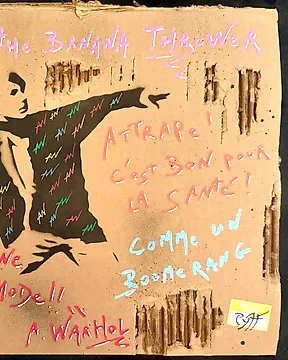 THE BANANA THROWER
ATTRAPE!
C'EST BON POUR
LA SANTÉ!
COMME UN
BOOMERANG
MODELL
A. WARHOL